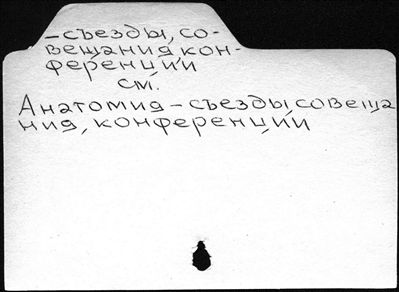 -съезды, со-
вещания кон-
ференции
см.
Анатомия - съезды, совеща
ния, конференции